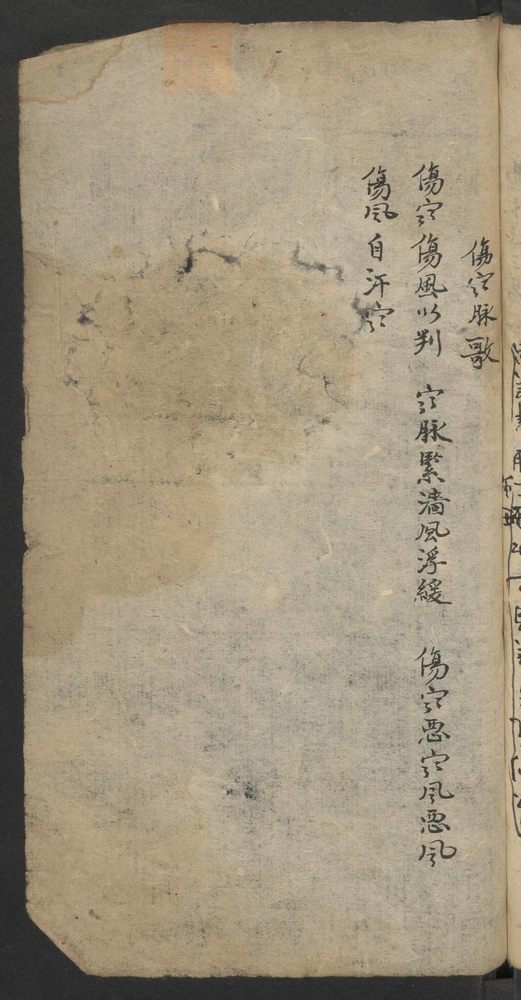 傷寒脉歌
傷寒傷風以判　寒脉緊濇風浮緩　傷寒悪寒風悪風
傷風自汗寒